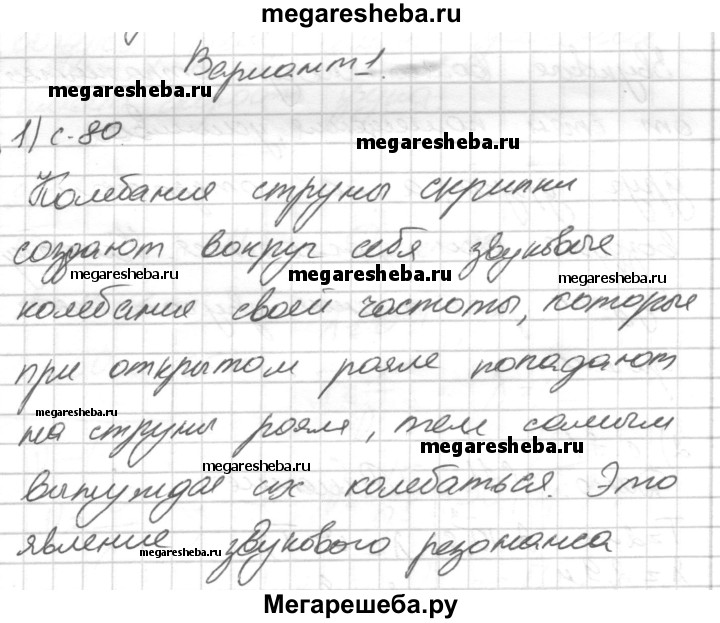 megaresheba.ru
Вариант 1.
megaresheba.ru
1) с-80.
megaresheba.ru
Колебание струны скрипки
создают вокруг себя звуковые
megaresheba.ru megaresheba.ru megaresheba.ru
колебание своей частоты, которые
при открытом рояле попадают
megaresheba.ru
на струны рояля, тем самым
megaresheba.ru
megaresheba.ru
вынуждая их колебаться. Это
явление звукового резонанса
megaresheba.ru megaresheba.ru
Мегарешеба.ру